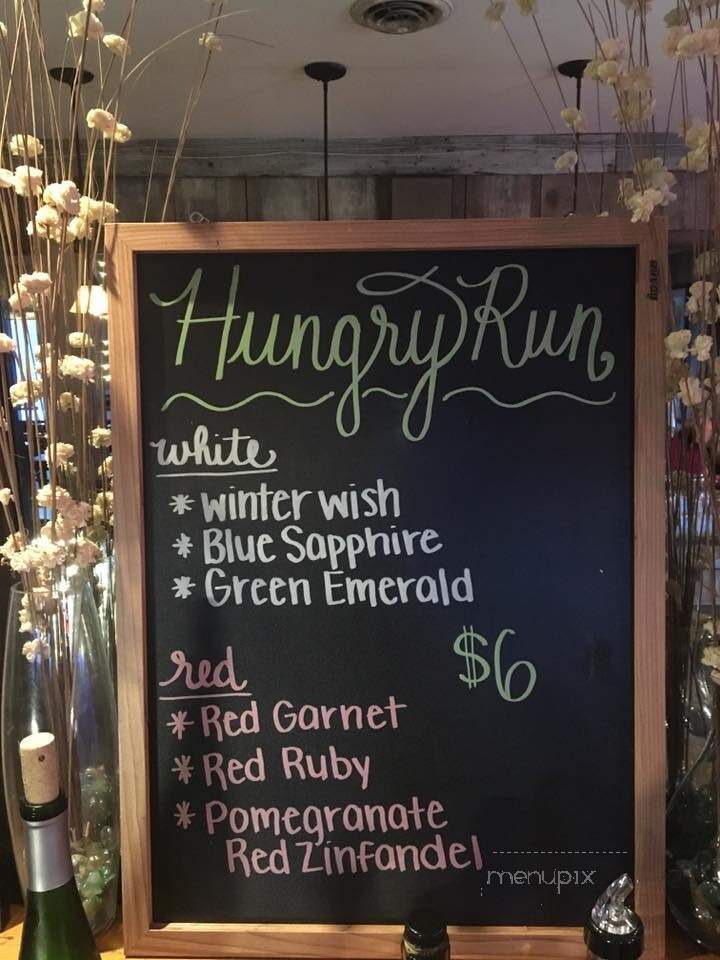 Hungry Run
white
* winter wish
* Blue Sapphire
* Green Emerald
$6
red
* Red Garnet
* Red Ruby
* Pomegranate
Red Zinfandel
menupix